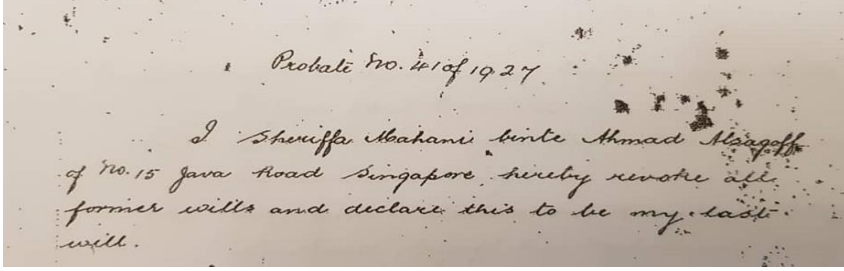 Probate No. 41 of 1927
I Sheriffa Mahani binte Ahmad Alsagoff
of No. 15 Java Road Singapore hereby revoke all
former wills and declare this to be my last
will.